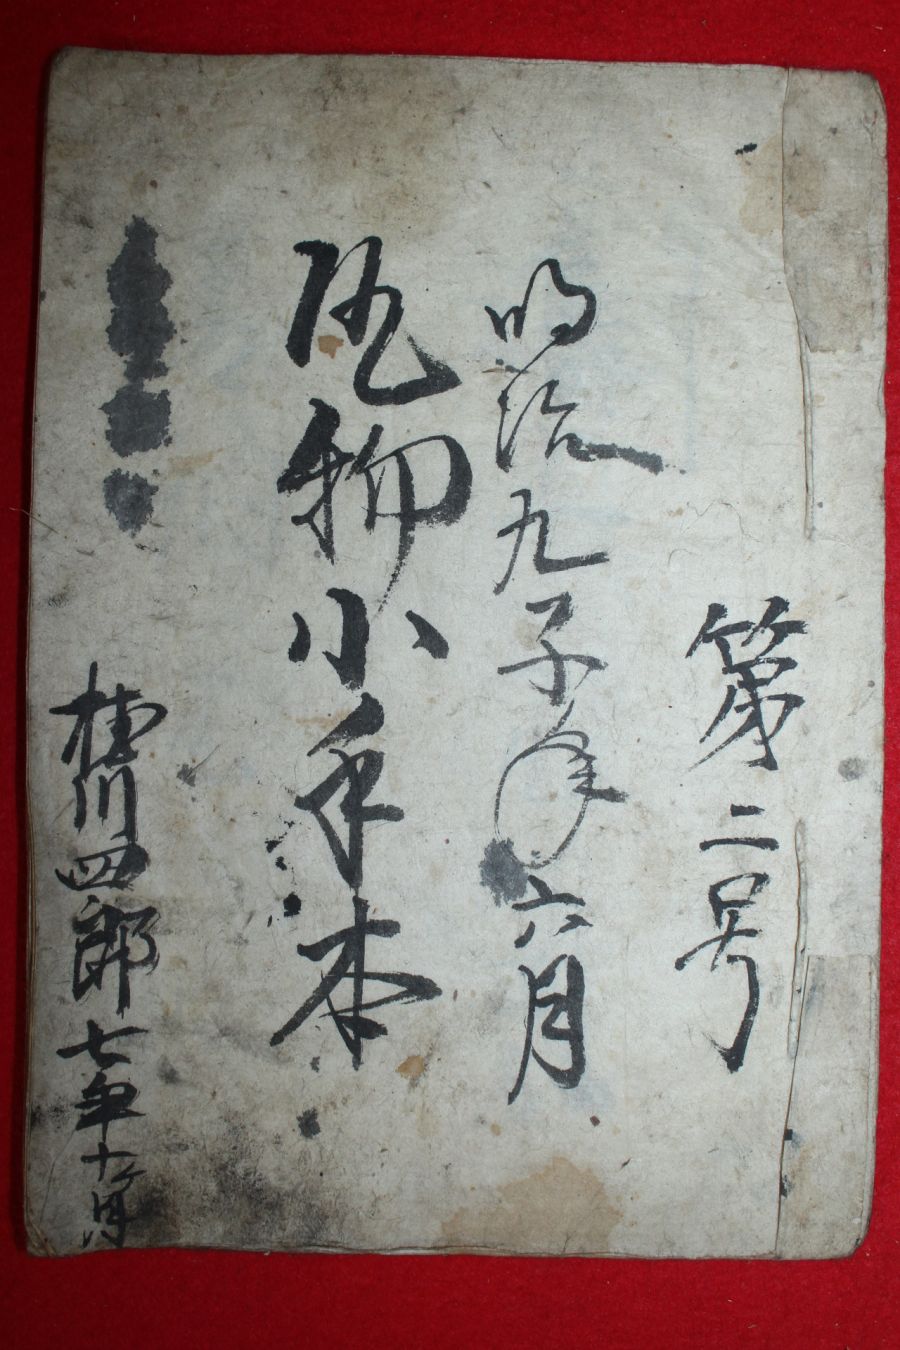 第二号
明治九子年六月
物小手本
桂川四郎七年十ヶ月